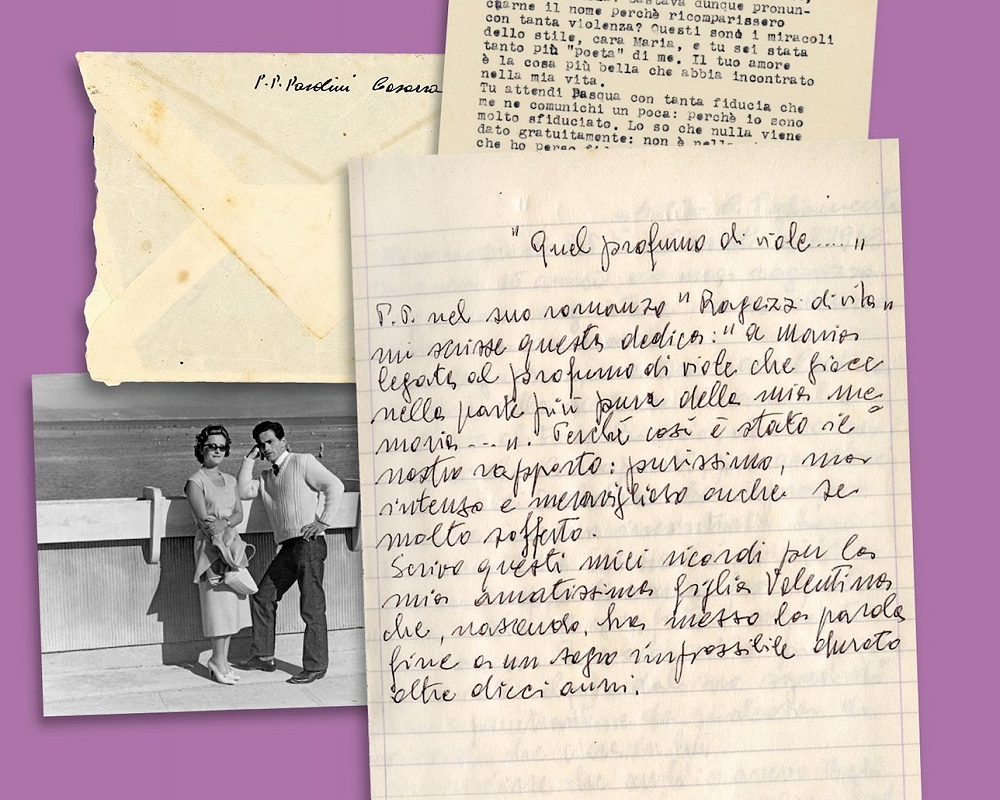 P. P. Pasolini Casarsa
bastava dunque pronun-
ciarne il nome perchè ricomparissero
con tanta violenza? Questi sono i miracoli
dello stile, cara Maria, e tu sei stata
tanto più "poeta" di me. Il tuo amore
è la cosa più bella che abbia incontrato
nella mia vita.
Tu attendi Pasqua con tanta fiducia che
me ne comunichi un poca: perchè io sono
molto sfiduciato. Lo so che nulla viene
dato gratuitamente: non è
che ho perso
" Quel profumo di viole .... "
P.P. nel suo romanzo " Ragazzi di vita "
mi scrisse questa dedica: " a Maria
legata al profumo di viole che giace
nella parte più pura della mia me
moria .... ". Perchè così è stato il
nostro rapporto: purissimo, ma
intenso e meraviglioso anche se
molto sofferto.
Scrivo questi miei ricordi per la
mia amatissima figlia Valentina
che, nascendo, ha messo la parola
fine a un sogno impossibile durato
oltre dieci anni.